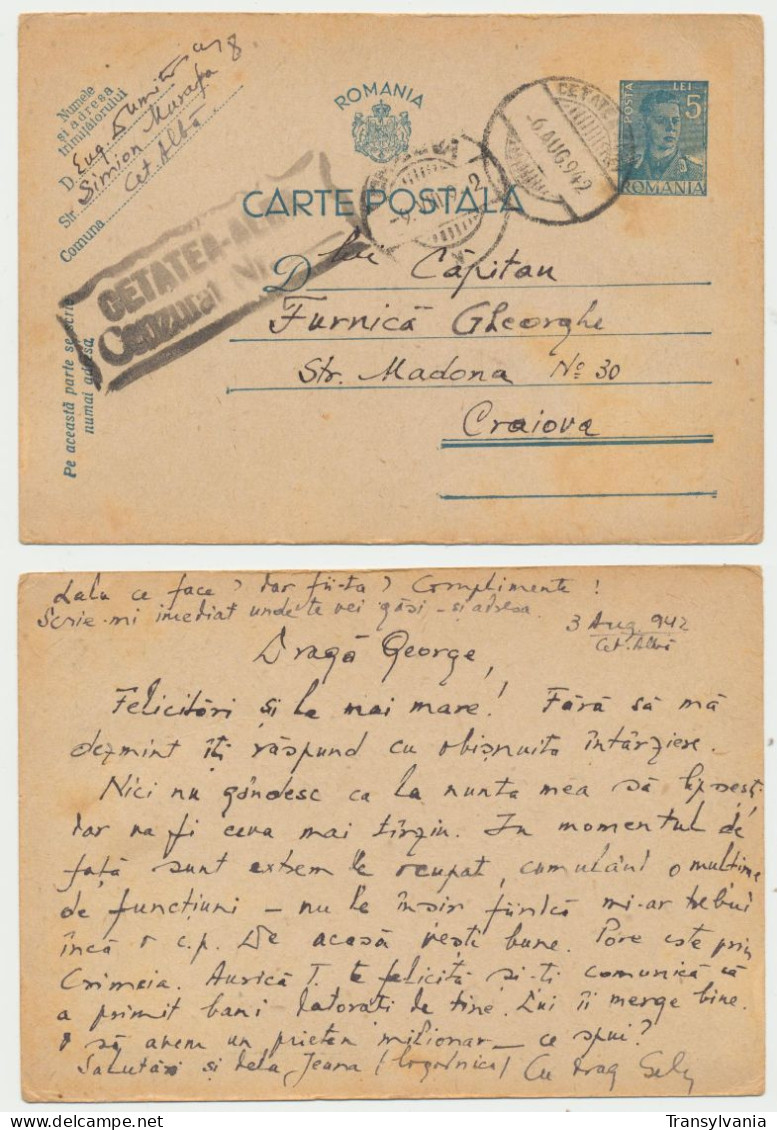 Numele
și adresa
trimițătorului
D. Eug. Dumitr
Str. Simion Murafa 8
Comuna Cet. Albă
ROMANIA
POSTA LEI 5
ROMANIA
CETATEA
-6. AUG 942
CARTE POSTALA
CETATEA-AL
Cenzurat Nr
Pe această parte se scrie
numai adresa
Dlui Căpitan
Furnică Gheorghe
Str. Madona No 30
Craiova
Lulu ce face? dar fii-ta? Complimente!
Scrie-mi imediat unde te vei găsi - și adresa
3 Aug. 942
Cet. Albă
Dragă George,
Felicitări și la mai mare! Fără să mă
dezmint îți răspund cu obișnuita întârziere.
Nici nu gândesc ca la nunta mea să lipsești
dar va fi ceva mai tîrziu. In momentul de
față sunt extrem de ocupat, cumulând o mulțime
de funcțiuni - nu le înșir fiindcă mi-ar trebui
încă o c.p. De acasă vești bune. Pore este prin
Crimeia. Aurică T. te felicită și-ți comunică că
a primit bani datorați de tine. Lui îi merge bine.
O să avem un prieten milionar - ce spui?
Salutări și dela Jeana (logodnica) Cu drag
Transylvania